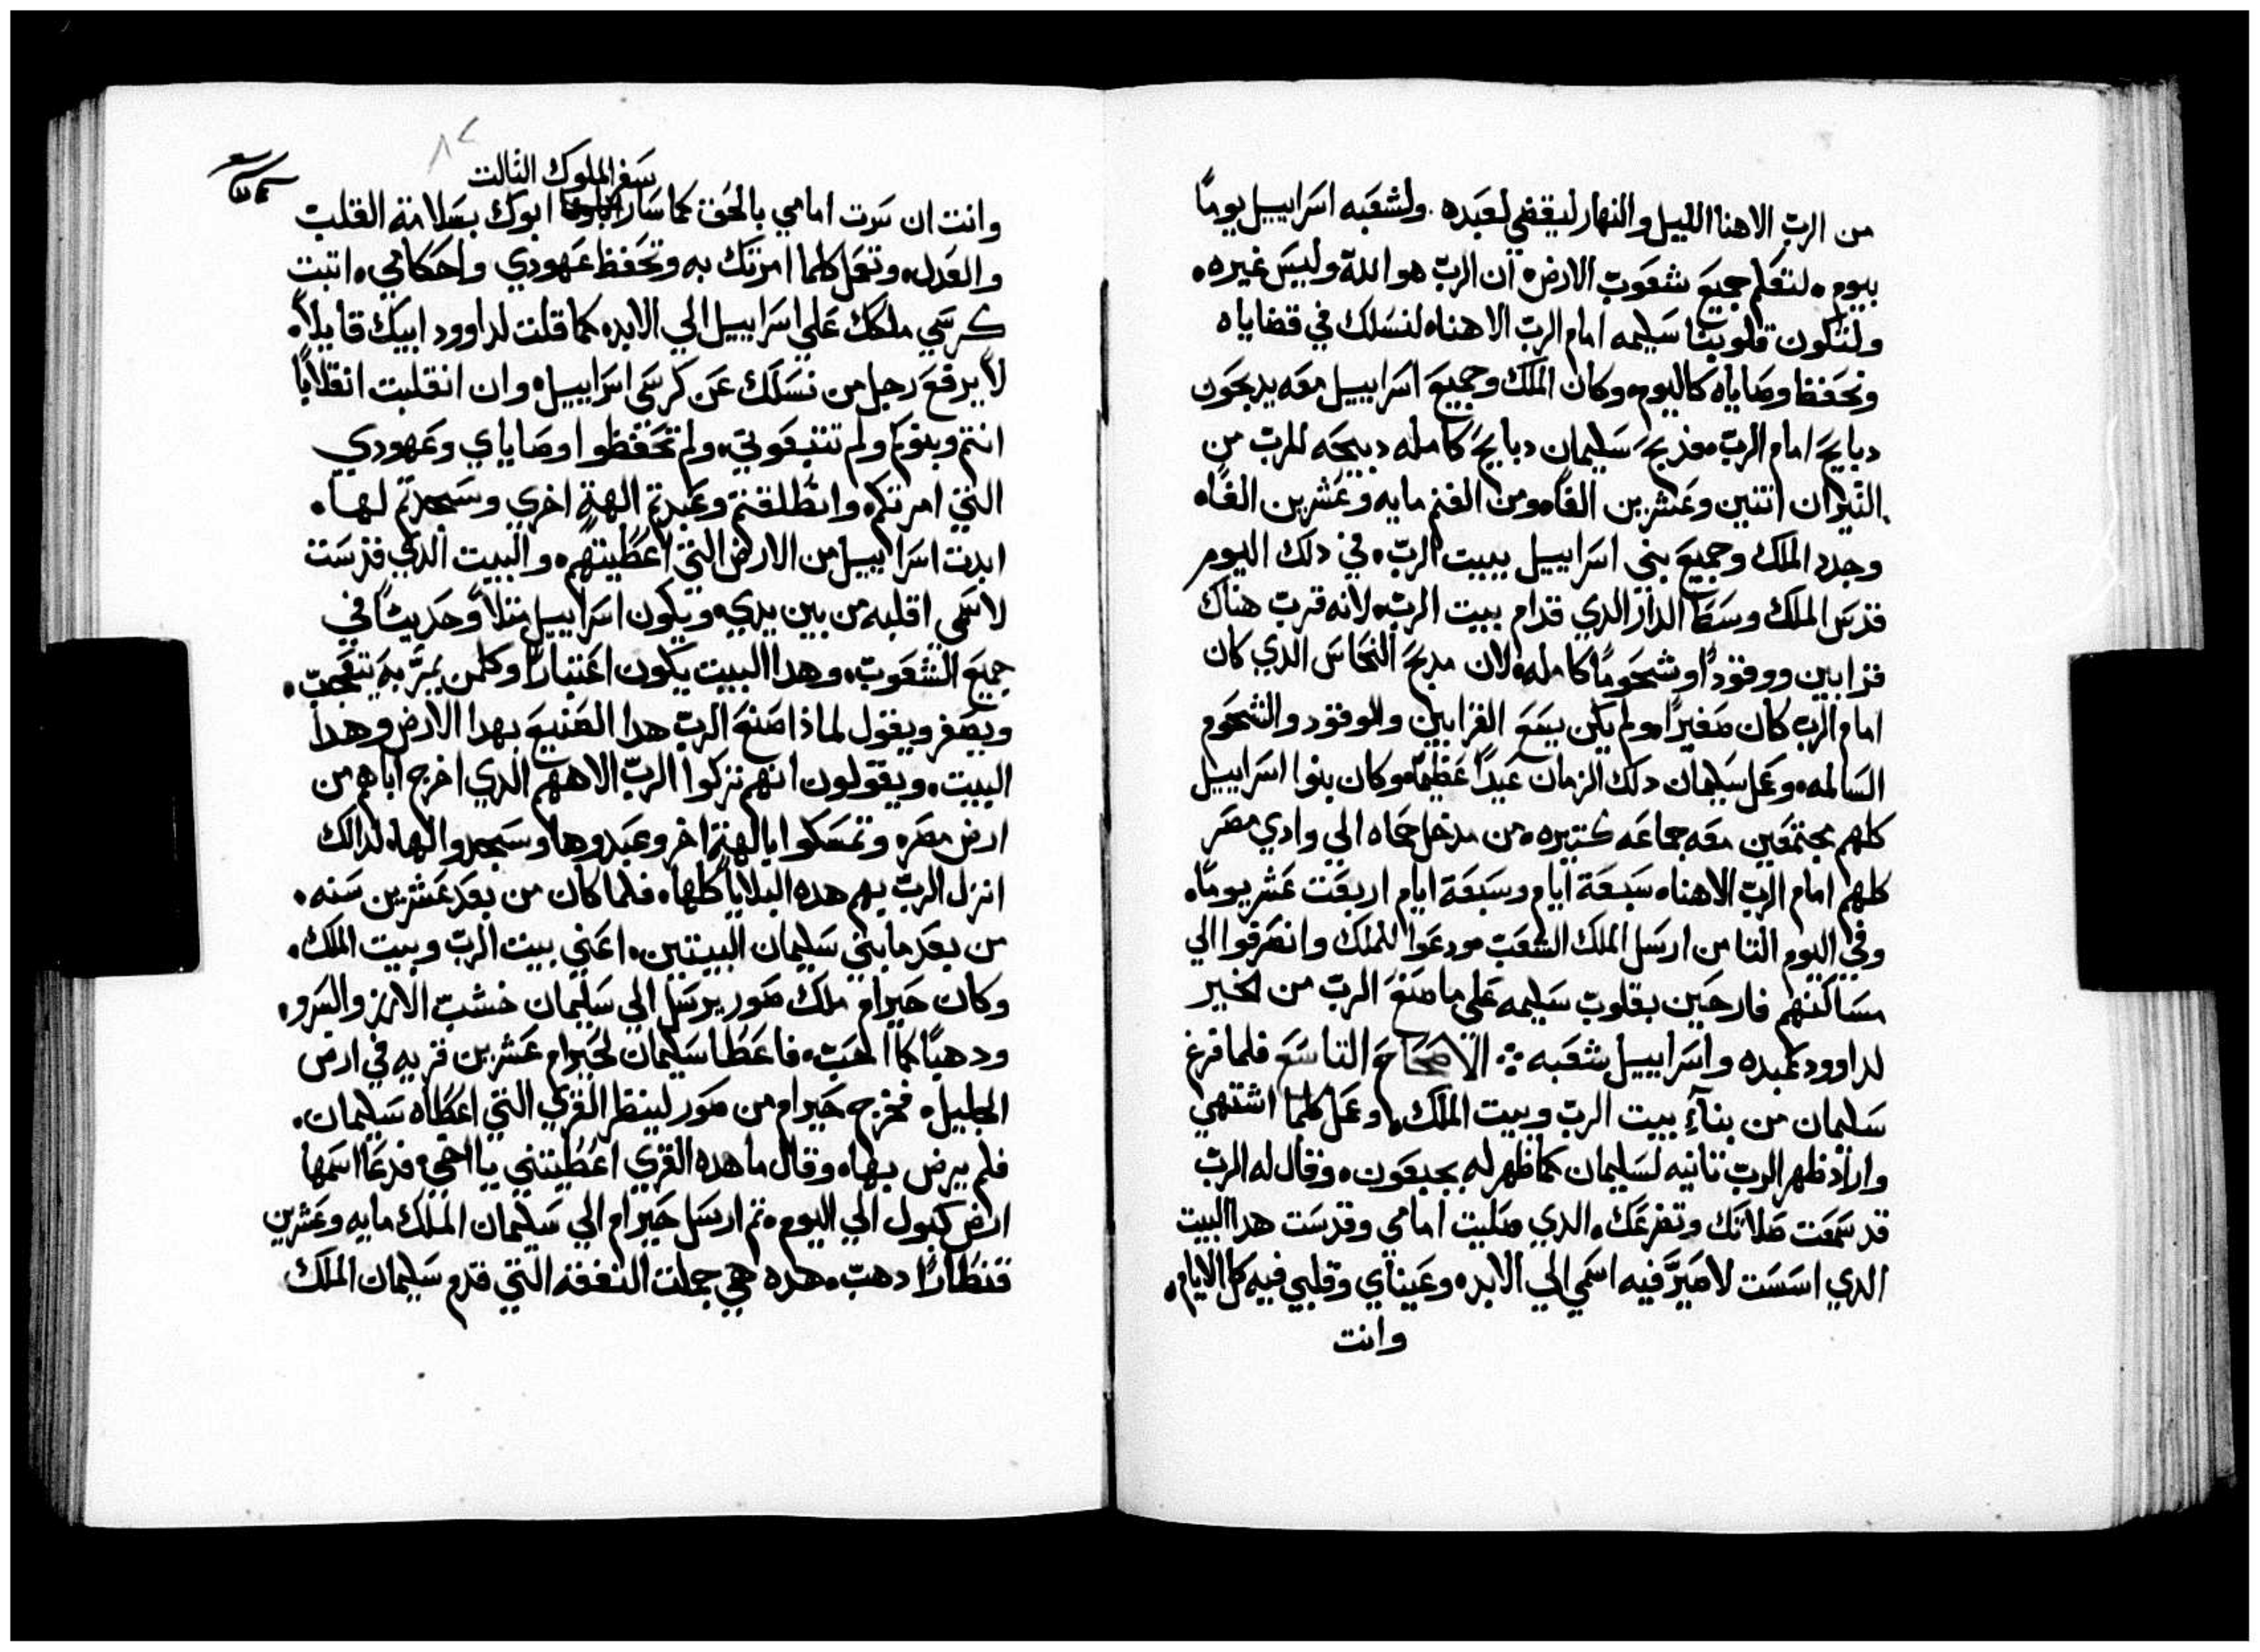 من الرب الاهنا الليل والنهار ليقضي لعبده. ولشعبه اسراييل يومًا
بيوم. لتعلم جميع شعوب الارض ان الرب هو الله وليس غيره.
ولتكون قلوبنا سليمه امام الرب الاهنا. لنسلك في قضاياه
ونحفظ وصاياه كاليوم. وكان الملك وجميع اسراييل معه يدبحون
دبايح امام الرب. فدبح سليمان دبايح كامله دبيحه للرب من
التيران اتنين وعشرين الفًا. ومن الغنم مايه وعشرين الفًا.
وجدد الملك وجميع بني اسراييل بيت الرب. في دلك اليوم
قدس الملك وسط الدار الدي قدام بيت الرب. لانه قرب هناك
قرابين ووقودًا وشحومًا كامله. لان مدبح النحاس الدي كان
امام الرب كان صغيرًا. ولم يكن يسع القرابين والوقود والشحوم
السالمه. وعمل سليمان دلك الزمان عيدًا عظيمًا. وكان بنوا اسراييل
كلهم مجتمعين معه جماعه كتيره. من مدخل حماه الي وادي مصر
كلهم امام الرب الاهنا. سبعة ايام وسبعة ايام اربعت عشر يومًا.
وفي اليوم التامن ارسل الملك الشعب. ودعوا للملك وانصرفوا الي
مساكنهم فارحين بقلوب سليمه علي ما صنع الرب من الخير
لداوود عبده واسراييل شعبه ⁘ الاصحاح التاسع فلما فرغ
سليمان من بنآءِ بيت الرب وبيت الملك. وعمل كلما اشتهي
واراد ظهر الرب تانيه لسليمان كما ظهر له بجبعون. وقال له الرب
قد سمعت صلاتك وتضرعك. الدي صليت امامي وقدست هدا البيت
الدي اسست لاصيرَّ فيه اسمي الي الابد. وعيناي وقلبي فيه كل الايام.
وانت
سفر الملوك التالت
وانت ان سرت امامي بالحق كما سار ابوك بسلامة القلب
والعدل. وتعمل كلما امرتك به وتحفظ عهودي واحكامي. اتبت
كرسي ملكك علي اسراييل الي الابد. كما قلت لداوود ابيك قايلاً.
لا يرفع رجل من نسلك عن كرسي اسراييل. وان انقلبت انقلابًا
انتم وبنوكم ولم تتبعوني. ولم تحفظوا وصاياي وعهودي
التي امرتكم. وانطلقتم وعبدتم الهةً اخري وسجدتم لها.
ابدت اسراييل من الارض التي اعطيتهم. والبيت الدي قدست
لاسمي اقلبه من بين يدي. ويكون اسراييل متلاً وحديثًا في
جميع الشعوب. وهدا البيت يكون اعتبارًا وكلمن يمرَّ به يتعجب.
ويصفر ويقول لماذا صنع الرب هدا الصنيع بهدا الارض وهدا
البيت. ويقولون انهم تركوا الرب الاههم الدي اخرج اباهم من
ارض مصر. وتمسكوا بالهة اخر وعبدوها وسجدوا لها. لدالك
انزل الرب بهم هده البلايا كلها. فلما كان من بعد عشرين سنه.
من بعد ما بني سليمان البيتين. اعني بيت الرب وبيت الملك.
وكان حيرام ملك صور يرسل الي سليمان خشب الارز والسرو.
ودهبًا كما احب. فاعطا سليمان لحيرام عشرين قريه في ارض
الجليل. فخرج حيرام من صور لينظر القري التي اعطاه سليمان.
فلم يرض بها. وقال ما هده القري اعطيتني يا اخي. فدعا اسمها
ارض كبول الي اليوم. تم ارسل حيرام الي سليمان الملك مايه وعشرين
قنطارًا دهب. هده هي جملت النفقه التي قدم سليمان الملك